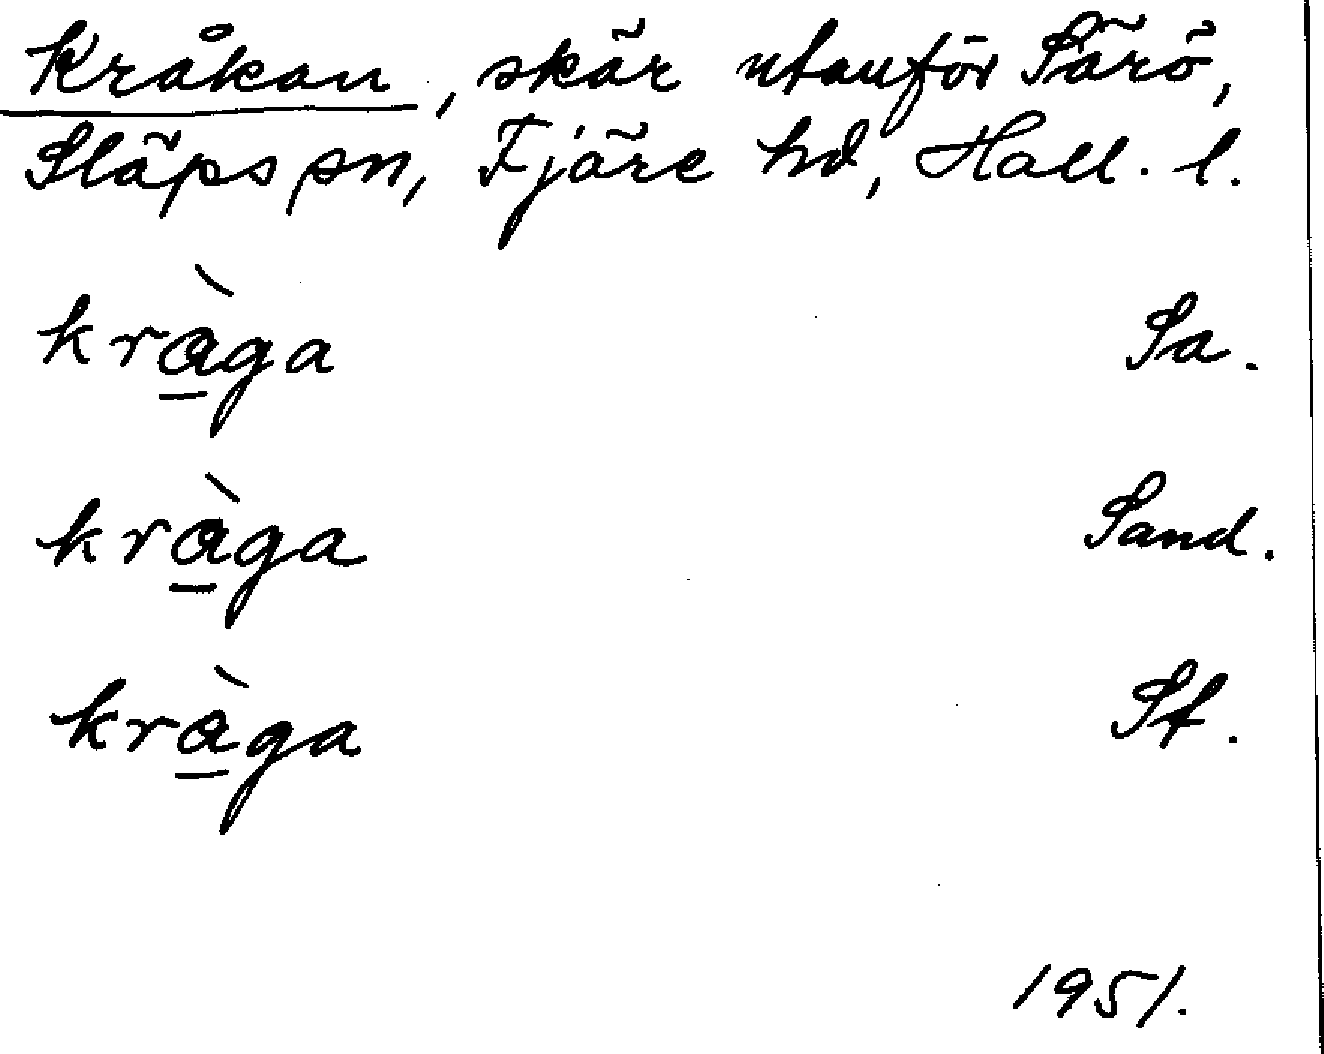 Kråkan, skär utanför Särö,
Släps sn, Fjäre hd, Hall. l.
kràga Sa.
kràga Sand.
kràga St.
1951.